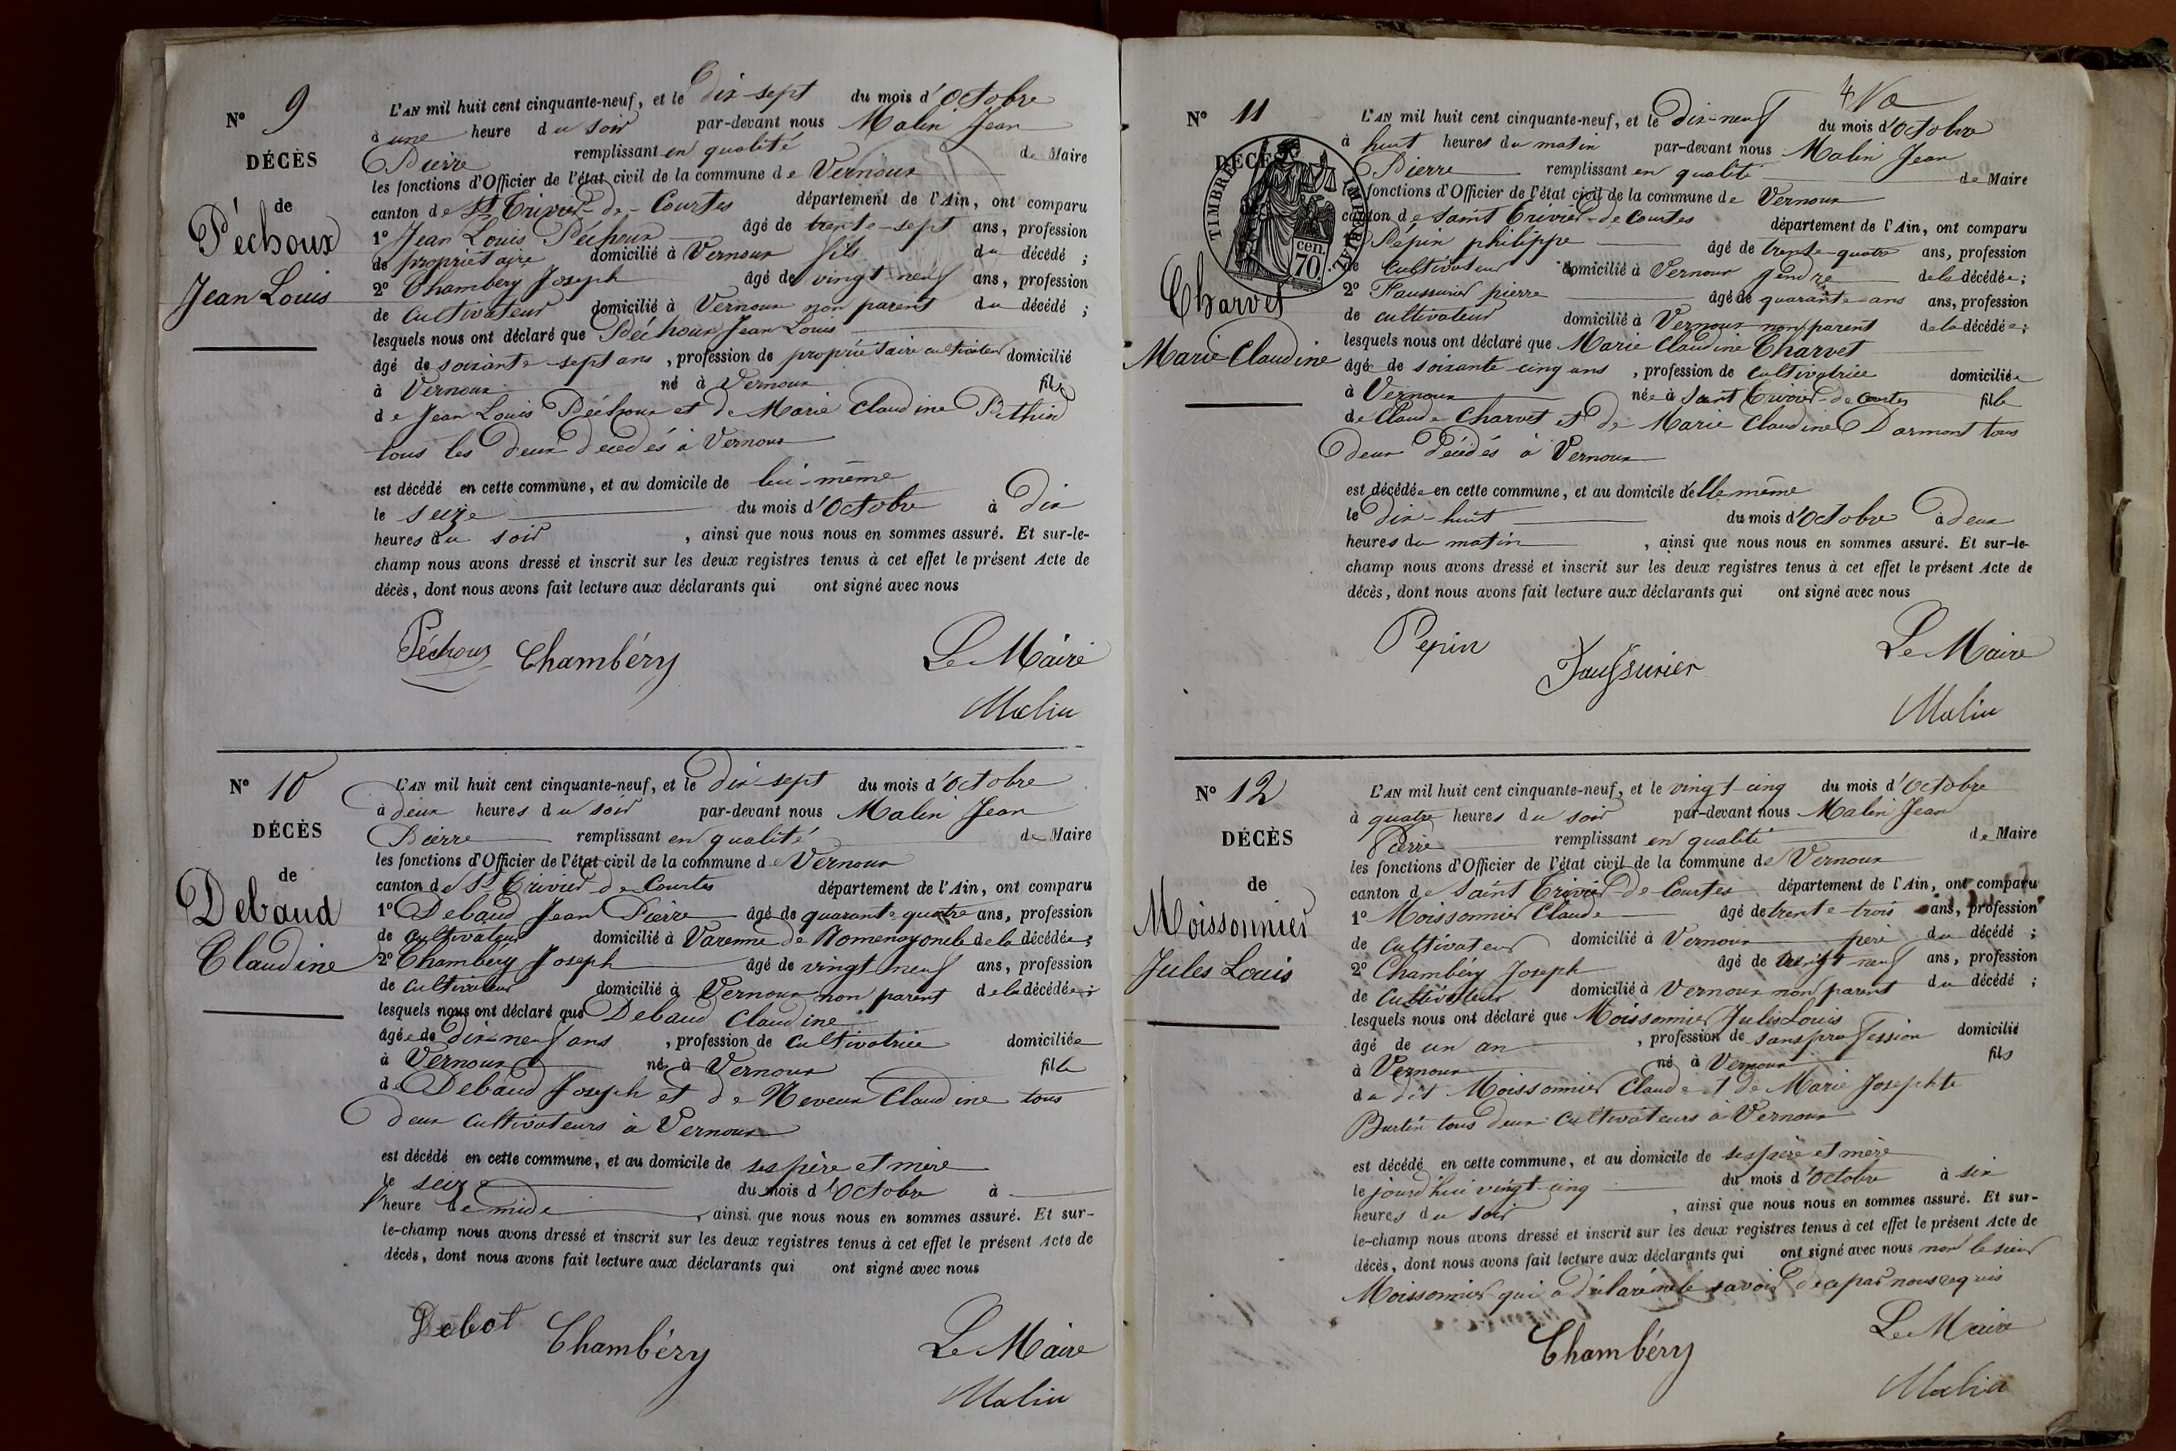 N° 9
DÉCÈS
de
Péchoux
Jean Louis
L'AN mil huit cent cinquante-neuf, et le dix-sept du mois d'Octobre
à une heure du soir par-devant nous Malin Jean
Pierre remplissant en qualité de Maire
les fonctions d'Officier de l'état civil de la commune de Vernoux
canton de St Trivier-de-Courtes département de l'Ain, ont comparu
1° Jean Louis Péchoux âgé de trente-sept ans, profession
de propriétaire domicilié à Vernoux fils du décédé ;
2° Chambéry Joseph âgé de vingt neuf ans, profession
de cultivateur domicilié à Vernoux non parent du décédé ;
lesquels nous ont déclaré que Péchoux Jean Louis
âgé de soixante-sept ans, profession de propriétaire cultivateur domicilié
à Vernoux né à Vernoux fils
de Jean Louis Péchoux et de Marie Claudine
tous les deux décédés à Vernoux
est décédé en cette commune, et au domicile de lui-même
le seize du mois d'Octobre à dix
heures du soir, ainsi que nous nous en sommes assuré. Et sur-le-
champ nous avons dressé et inscrit sur les deux registres tenus à cet effet le présent Acte de
décès, dont nous avons fait lecture aux déclarants qui ont signé avec nous
Péchoux Chambéry Le Maire
Malin
N° 10
DÉCÈS
de
Debaud
Claudine
L'AN mil huit cent cinquante-neuf, et le dix-sept du mois d'Octobre
à deux heures du soir par-devant nous Malin Jean
Pierre remplissant en qualité de Maire
les fonctions d'Officier de l'état civil de la commune de Vernoux
canton de St Trivier-de-Courtes département de l'Ain, ont comparu
1° Debaud Jean Pierre âgé de quarante-quatre ans, profession
de cultivateur domicilié à Varenne de oncle de la décédée ;
2° Chambéry Joseph âgé de vingt neuf ans, profession
de cultivateur domicilié à Vernoux non parent de la décédée ;
lesquels nous ont déclaré que Debaud Claudine
âgée de dix-neuf ans, profession de cultivatrice domiciliée
à Vernoux née à Vernoux fille
de Debaud Joseph et de Neveux Claudine tous
deux cultivateurs à Vernoux
est décédé en cette commune, et au domicile de ses père et mère
le seize du mois d'Octobre à
l'heure de midi, ainsi que nous nous en sommes assuré. Et sur-
le-champ nous avons dressé et inscrit sur les deux registres tenus à cet effet le présent Acte de
décès, dont nous avons fait lecture aux déclarants qui ont signé avec nous
Debot Chambéry Le Maire
Malin
N° 11
DÉCÈS
TIMBRE IMPERIAL
70 cen.
Charvet
Marie Claudine
L'AN mil huit cent cinquante-neuf, et le dix-neuf du mois d'Octobre
à huit heures du matin par-devant nous Malin Jean
Pierre remplissant en qualité de Maire
fonctions d'Officier de l'état civil de la commune de Vernoux
canton de Saint Trivier-de-Courtes département de l'Ain, ont comparu
Pépin philippe âgé de trente-quatre ans, profession
de cultivateur domicilié à Vernoux gendre de la décédée ;
2° Faussurier pierre âgé de quarante ans ans, profession
de cultivateur domicilié à Vernoux non parent de la décédée ;
lesquels nous ont déclaré que Marie Claudine Charvet
âgée de soixante-cinq ans, profession de cultivatrice domiciliée
à Vernoux née à Saint Trivier-de-Courtes fille
de Claude Charvet et de Marie Claudine Darmont tous
deux décédés à Vernoux
est décédée en cette commune, et au domicile d'elle même
le dix-huit du mois d'Octobre à deux
heures du matin, ainsi que nous nous en sommes assuré. Et sur-le-
champ nous avons dressé et inscrit sur les deux registres tenus à cet effet le présent Acte de
décès, dont nous avons fait lecture aux déclarants qui ont signé avec nous
Pepin Faussurier Le Maire
Malin
N° 12
DÉCÈS
de
Moissonnier
Jules Louis
L'AN mil huit cent cinquante-neuf, et le vingt-cinq du mois d'Octobre
à quatre heures du soir par-devant nous Malin Jean
Pierre remplissant en qualité de Maire
les fonctions d'Officier de l'état civil de la commune de Vernoux
canton de Saint Trivier-de-Courtes département de l'Ain, ont comparu
1° Moissonnier Claude âgé de trente-trois ans, profession
de cultivateur domicilié à Vernoux père du décédé ;
2° Chambéry Joseph âgé de vingt neuf ans, profession
de cultivateur domicilié à Vernoux non parent du décédé ;
lesquels nous ont déclaré que Moissonnier Jules Louis
âgé de un an, profession de sans profession domicilié
à Vernoux né à Vernoux fils
du dit Moissonnier Claude et de Marie Josephte
Burtin tous deux cultivateurs à Vernoux
est décédé en cette commune, et au domicile de ses père et mère
le jourd'hui vingt-cinq du mois d'Octobre à six
heures du soir, ainsi que nous nous en sommes assuré. Et sur-
le-champ nous avons dressé et inscrit sur les deux registres tenus à cet effet le présent Acte de
décès, dont nous avons fait lecture aux déclarants qui ont signé avec nous non le sieur
Moissonnier qui a déclaré ne le savoir de ce par nous requis
Chambéry Le Maire
Malin